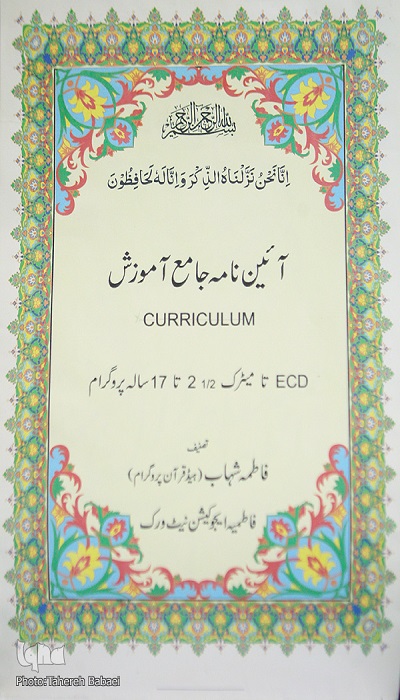 بسم الله الرحمن الرحيم
اِنَّا نَحْنُ نَزَّلْنَاهُ الذِّكْرَ وَ اِنَّا لَهٗ لَحَافِظُوْنَ
آئین نامہ جامع آموزش
CURRICULUM
ECD تا میٹرک 2 1/2 تا 17 سالہ پروگرام
تصنیف
فاطمہ شہاب (ہیڈ قرآن پروگرام)
فاطمیہ ایجوکیشن نیٹ ورک
iqna
Photo:Tahereh Babaei